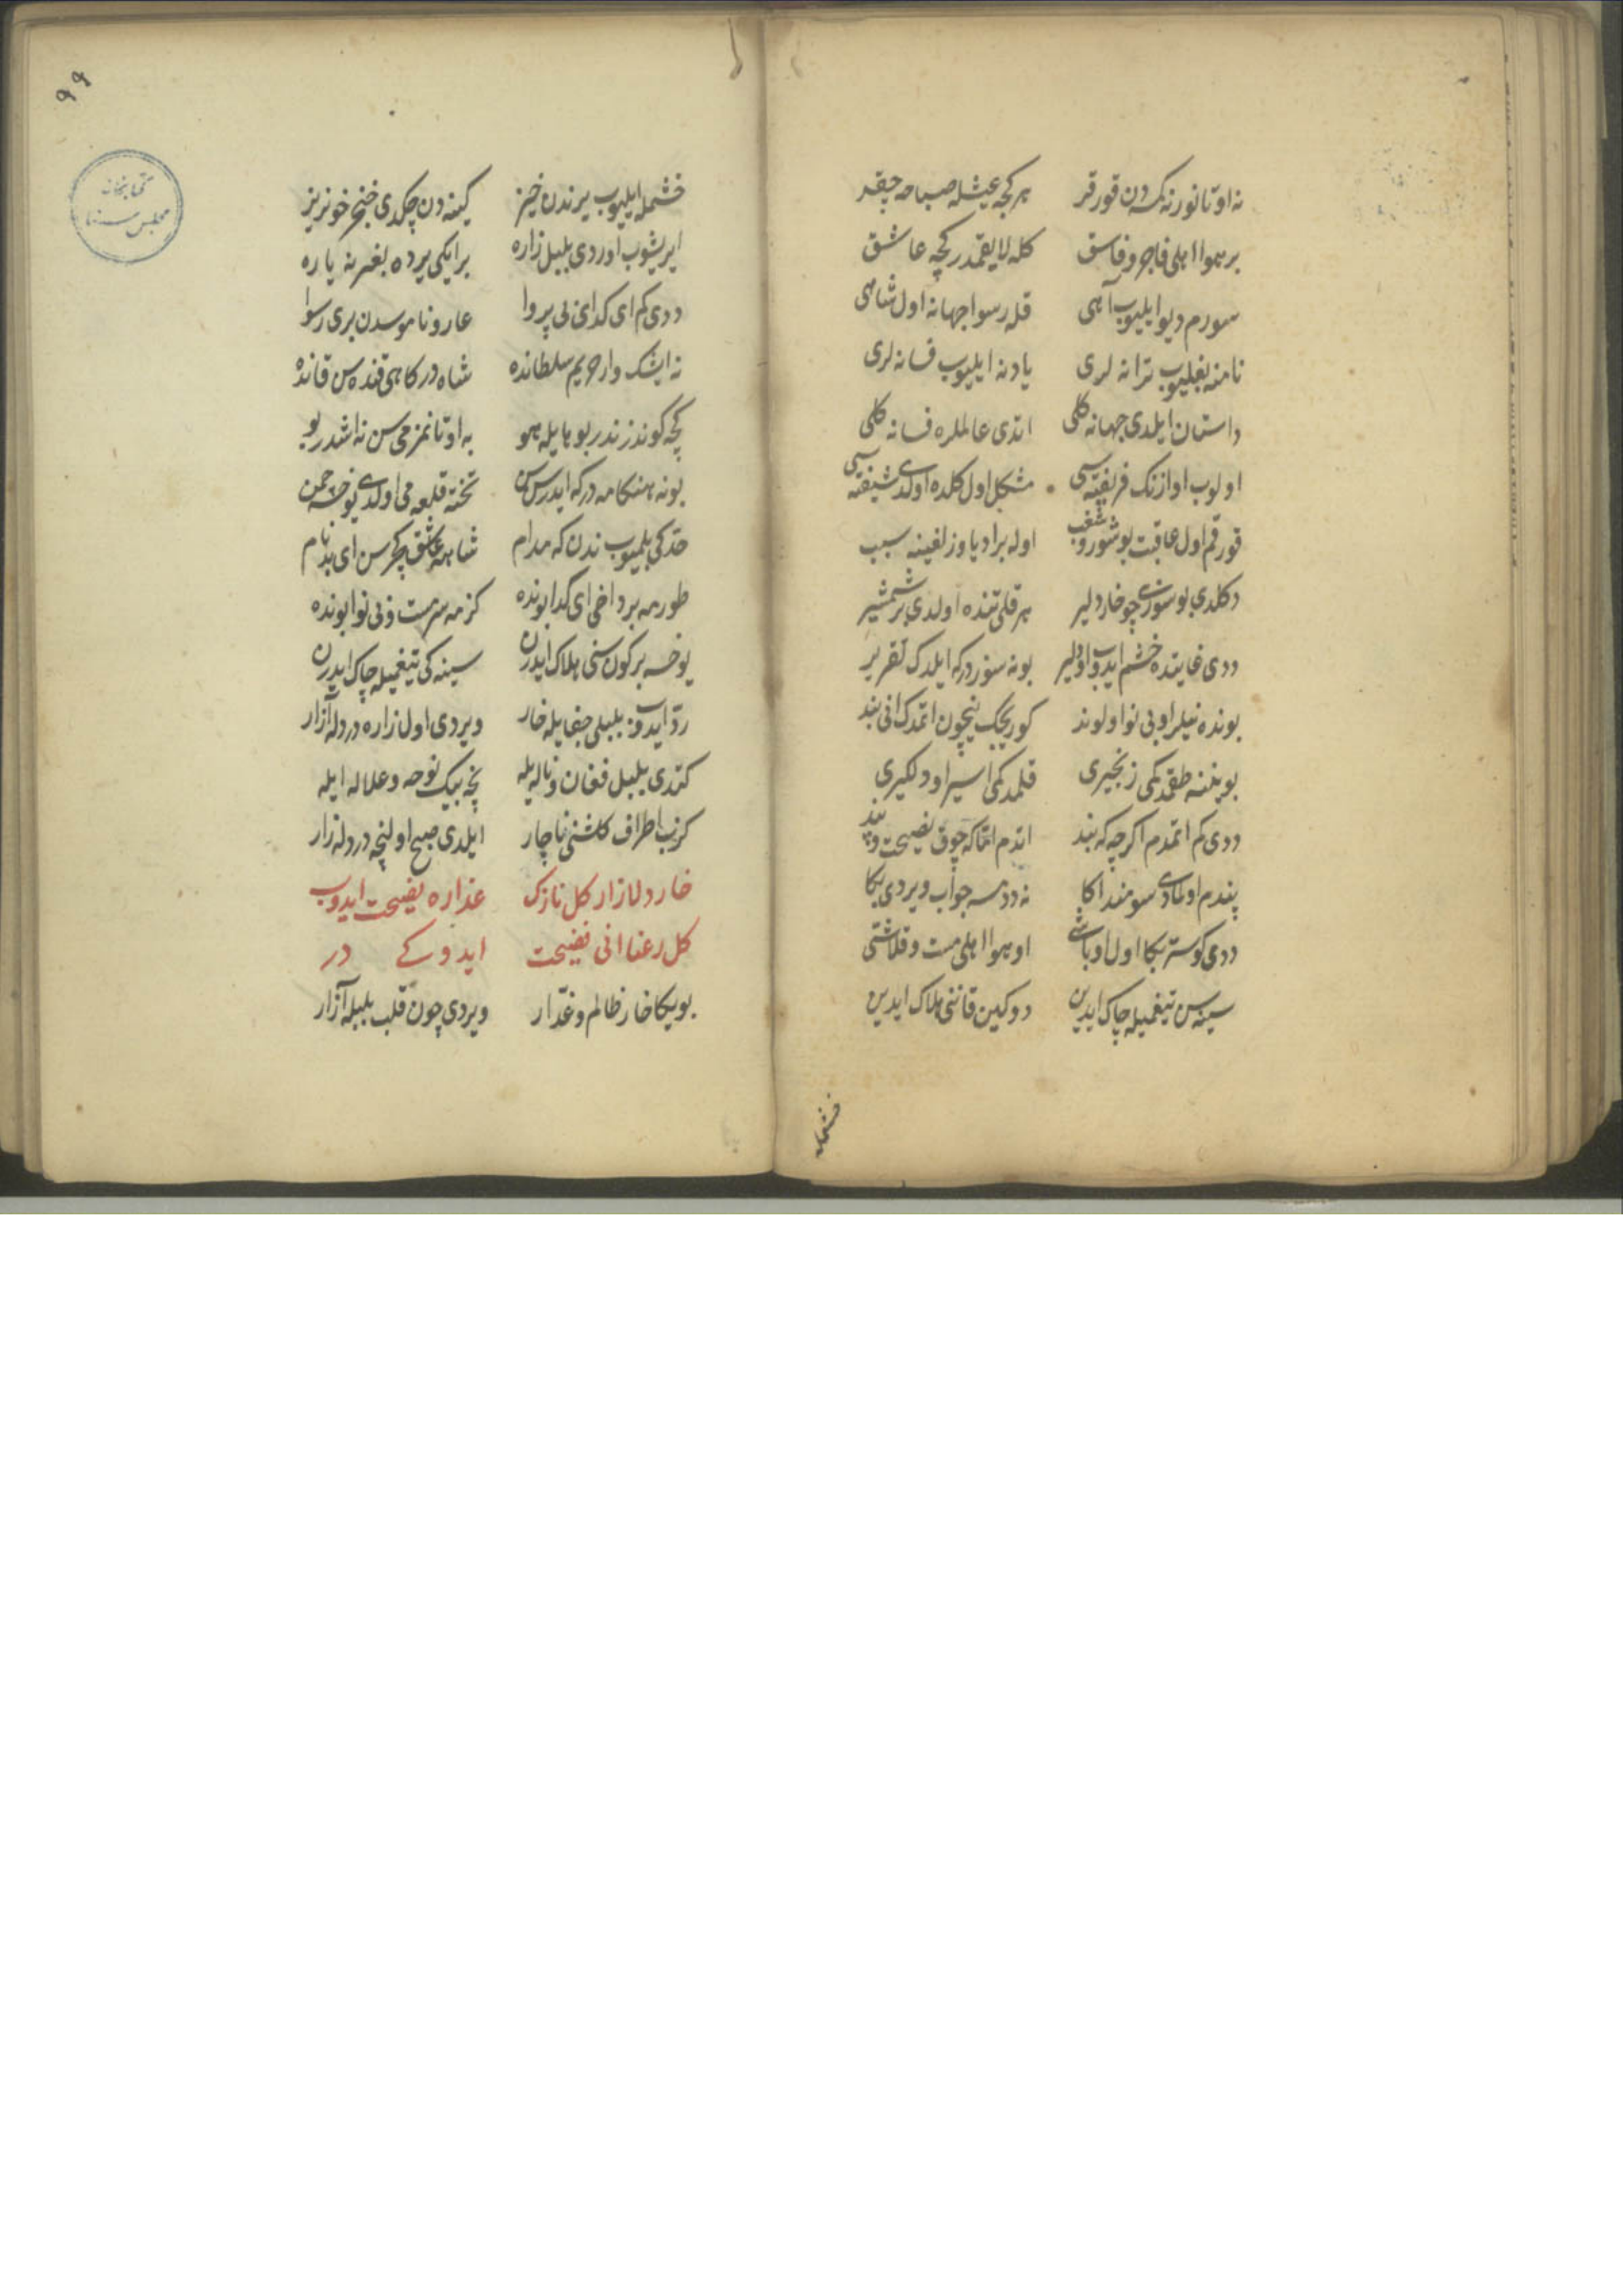 نه اوتانور نه کسه دن قورقر هر کجه عیشله صباحه چیقر
بر هوا اهلی فاجر و فاسق کله لایقمدر کچه عاشق
سورم دیو ایلیوب آهی قله رسوا جهانه اول شاهی
نامنه بغلیوب ترانه لری یادنه ایلیوب فسانه لری
داستان ایلدی جهانه کلی اتدی عالملره فسانه کلی
اولوب اوازنک فریفته سی مشکل اول کلده اولدی شیفته سی
قورقم اول عاقبت بو شور و شغب اوله برادیاوزلغینه سبب
دکلدی بو سوزی چو خار دلیر هر قلی تنده اولدی بر شمشیر
ددی غایتده خشم ایدوب او دلیر بو نه سوزدرکه ایلدک تقریر
بونده نیلر او بی نوا اولوند کوریجک نیچون اتمدک انی بند
بویننه طقمدکمی زنجیری قلمدکمی اسیر اودلکیری
ددی کم اتمدم اکرچه که بند اتدم اتما که چوق نصیحت و پند
پندم اولمادی سومند اکا نه ددمسه جواب ویردی بکا
ددی کوستر بکا اول اوباشی او هوا اهلی مست و قلاشی
سینه سن تیغمیله چاک ایدین دوکین قاننی هلاک ایدین
خشمله
۹۹
خشمله ایلیوب یرندن خیز کینه دن چکدی خنجر خونریز
ایریشوب اوردی بلبل زاره بر ایکی یرده بغرینه یاره
ددی کم ای کدای بی پروا عار و ناموسدن بری رسوا
نه ایشک وار حریم سلطانده شاه درکاهی قنده سن قانده
کجه کوندز ندر بو هایله هو به اوتانمزمی سن نه اشدر بو
بو نه هنکامه درکه ایدرسن سن تخته قلعه می اولدی یوخسه چمن
حدکی بلمیوب ندن که مدام شاهه عاشق کچرسن ای بدنام
طورمه بر داخی ای کدا بونده کزمه سرمست و بی نوا بونده
یوخسه بر کون سنی هلاک ایدرن سینه کی تیغمیله چاک ایدرن
رد ایدوب بلبلی جفایله خار ویردی اول زاره درد له آزار
کتدی بلبل فغان و ناله یله نجه بیک نوحه و علاله ایله
کزب اطراف کلشنی ناچار ایلدی صبح اولنجه درد له زار
خار دلازار کل نازک عذاره نصیحت ایدوب
کل رعنا انی فضیحت ایدوکی در
بویکا خار ظالم و غدار ویردی چون قلب بلبله آزار
کتابخانه
مجلس سنا